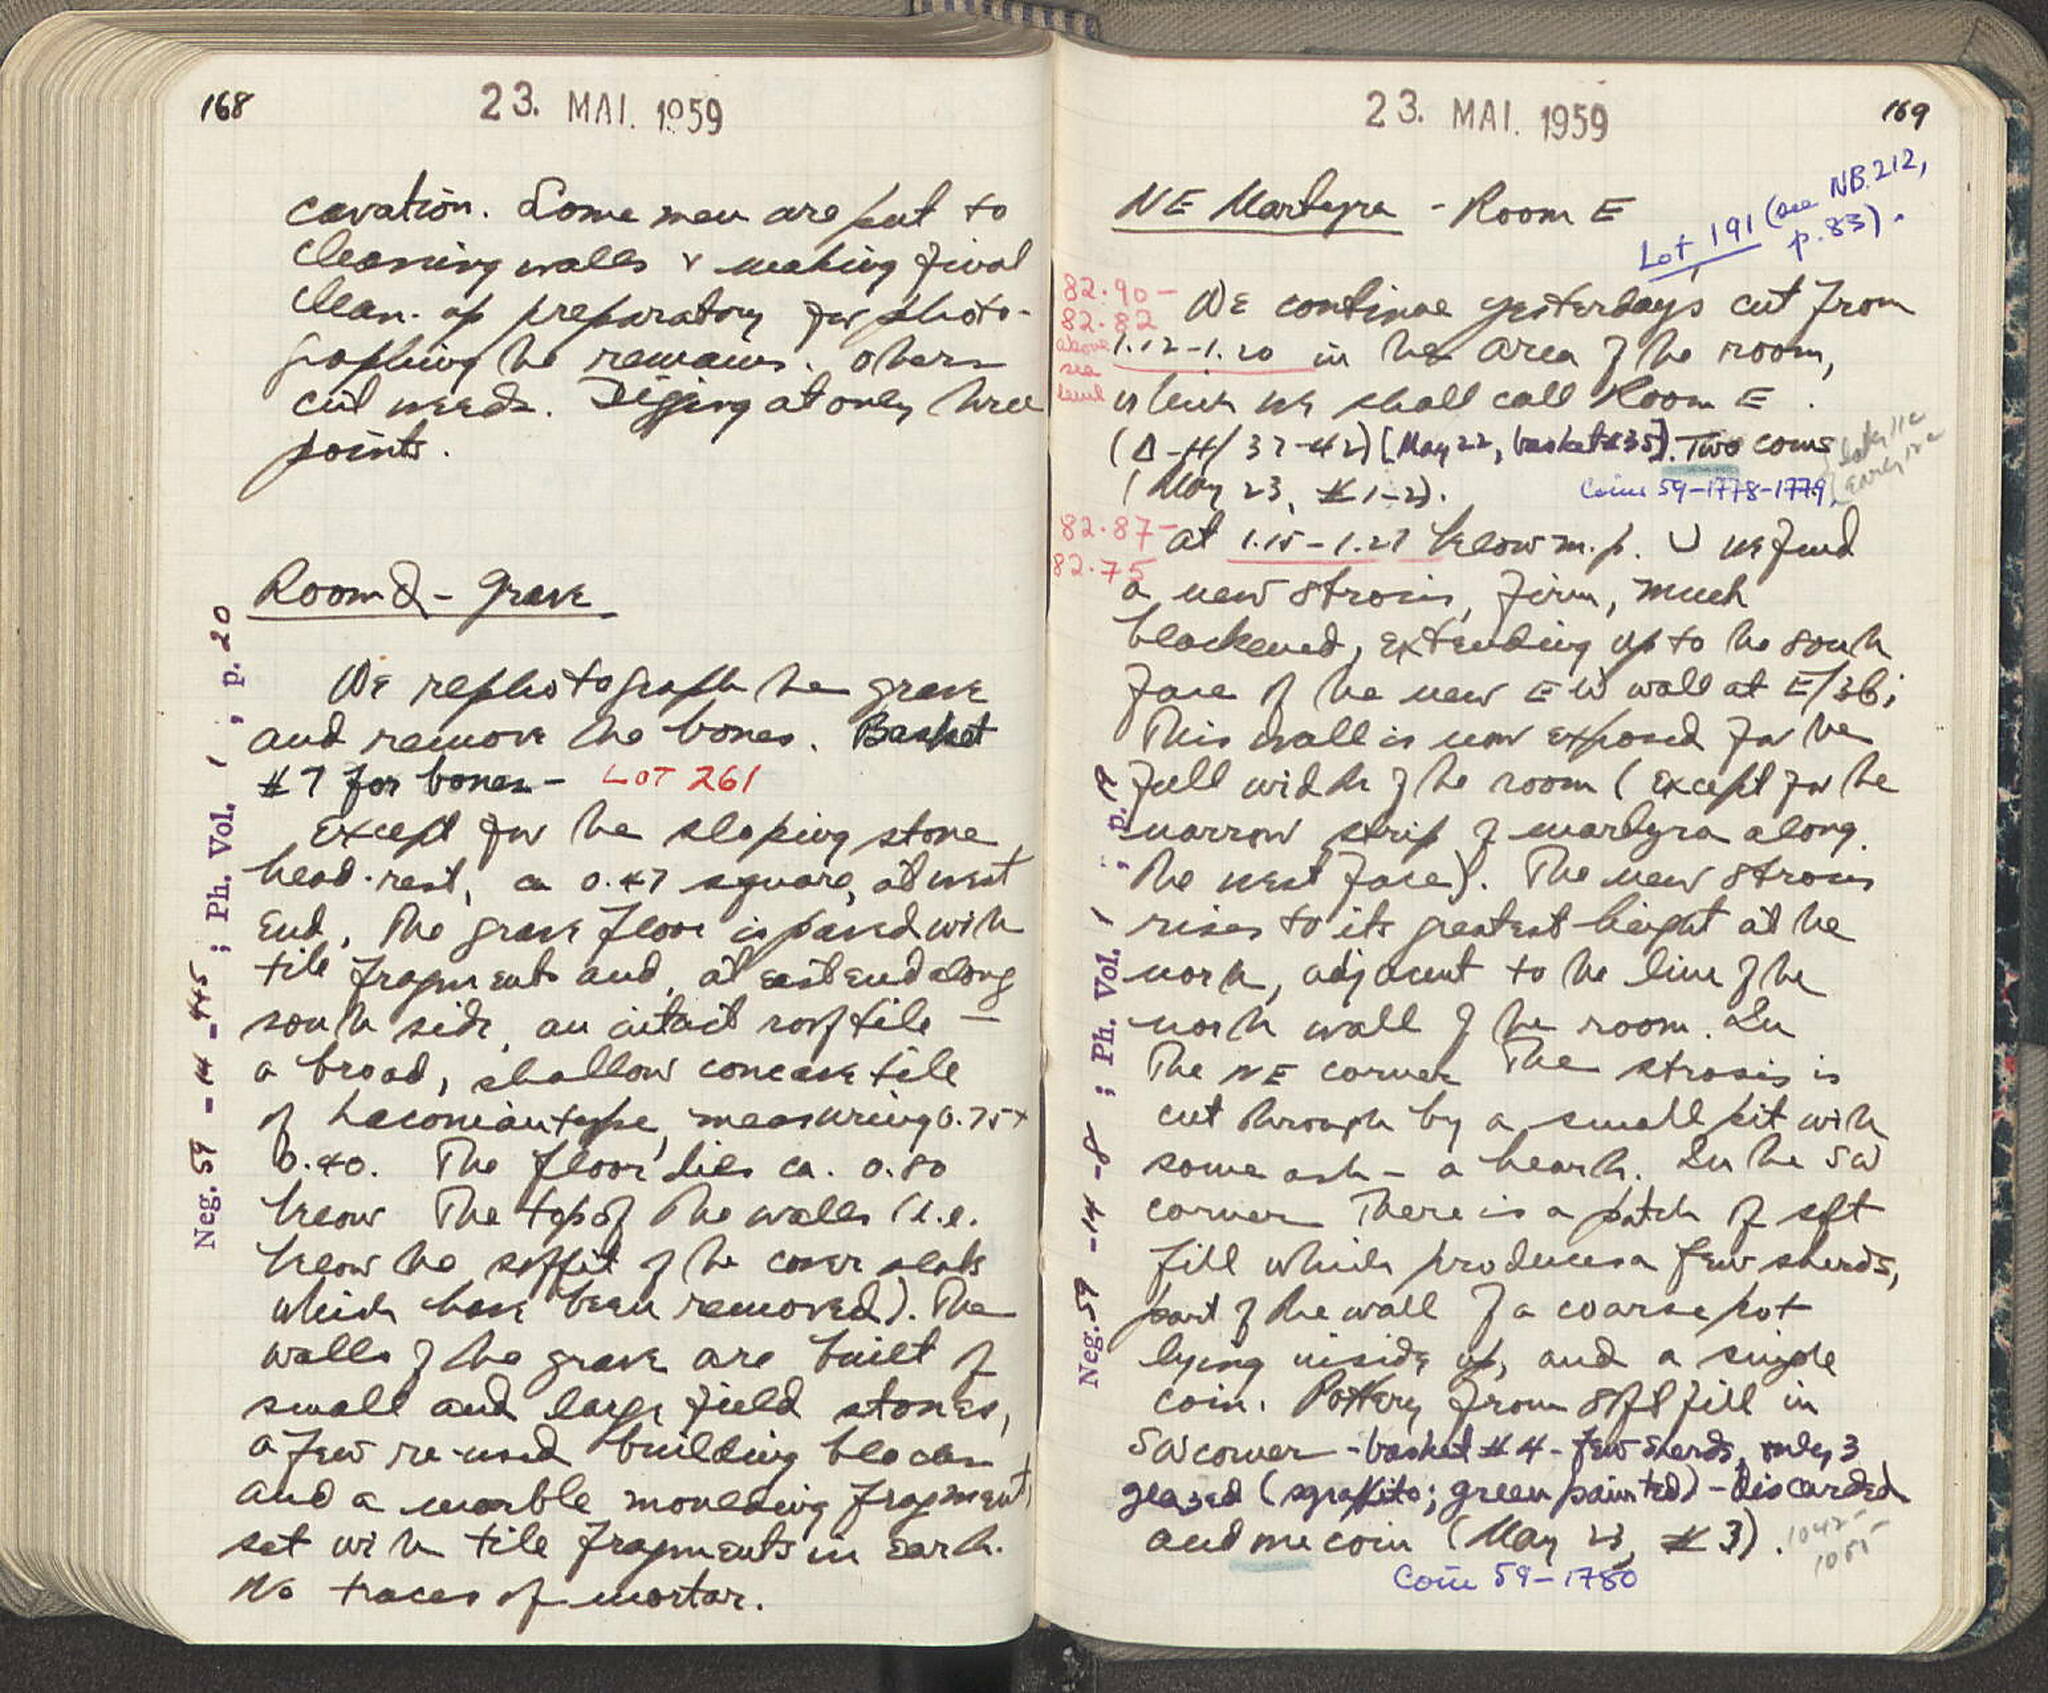 168
23. MAI. 1959
cavation. Some men are put to
cleaning walls & making final
clean-up preparatory for photo-
graphing the remains. Others
cut weeds. Digging at only three
points.
Room D - Grave
We rephotograph the grave
and remove the bones. Basket
#7 for bones - LOT 261
Except for the sloping stone
head-rest, ca 0.47 square, at west
end, the grave floor is paved with
tile fragments and, at east end along
south side, an intact roof tile —
a broad, shallow concave tile
of Laconian type, measuring 0.75 x
0.40. The floor lies ca. 0.80
below the top of the walls (i.e.
below the soffit of the cover slabs
which have been removed). The
walls of the grave are built of
small and large field stones,
a few re-used building blocks
and a marble moulding fragment,
set with tile fragments in earth.
No traces of mortar.
Neg. 59 - 14 - 445 ; Ph. Vol. 1 , p. 20
23. MAI. 1959
169
NE Martyra - Room E
Lot 191 (see NB. 212,
p. 83).
82.90-
82.82
above
sea
level
We continue yesterdays cut from
1.12-1.20 in the area of the room,
which we shall call Room E.
(Δ-H/37-42) [May 22, basket #35]. Two coins
(May 23, #1-2).
Coins 59-1778-1779
late 11c
early 12c
82.87-
82.75
at 1.15-1.27 below m.p. U we find
a new strosis, firm, much
blackened, extending up to the south
face of the new EW wall at E/36;
This wall is now exposed for the
full width of the room (except for the
narrow strip of martyra along
the west face). The new strosis
rises to its greatest height at the
north, adjacent to the line of the
north wall of the room. In
the NE corner the strosis is
cut through by a small pit with
some ash - a hearth. In the SW
corner there is a patch of soft
fill which produces a few sherds,
part of the wall of a coarse pot
lying inside up, and a single
coin. Pottery from soft fill in
SW corner - basket #4 - few sherds, only 3
glazed (sgraffito; green painted) - Discarded
and one coin (May 23, #3).
1042-
1055
Coin 59-1780
Neg. 59 - 14 - 8 ; Ph. Vol. 1 ; p. 19